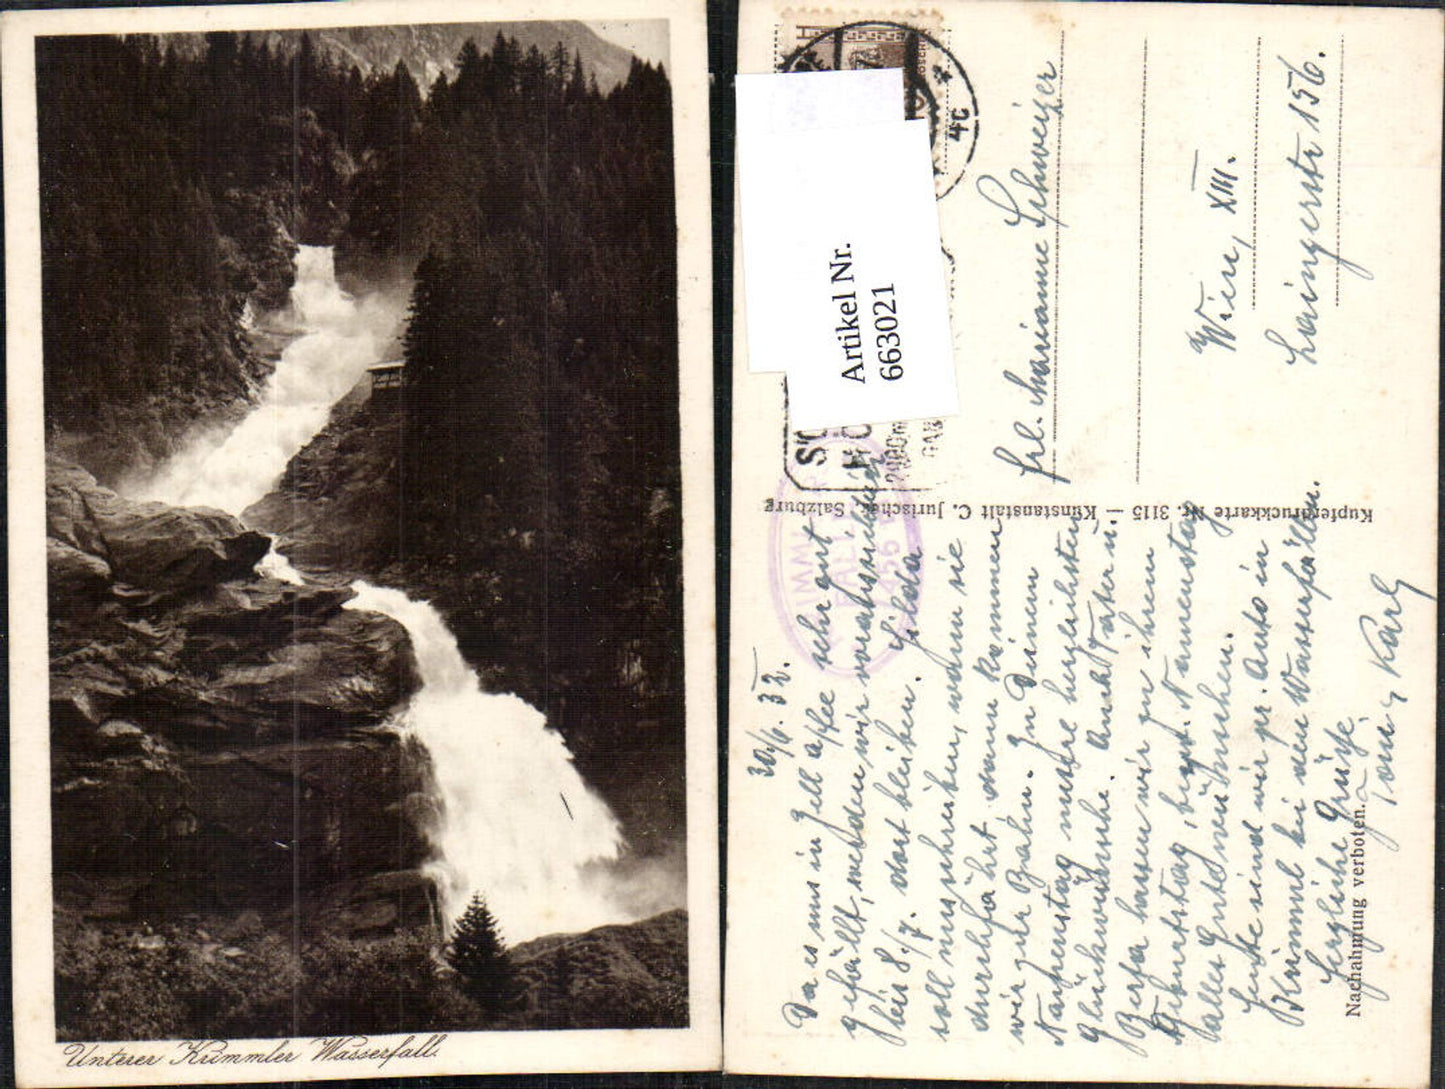 Unterer Krimmler Wasserfall.
Artikel Nr.
663021
30./6. 32.
Da es uns in Zell a/See sehr gut
gefällt, werden wir voraussichtlich
bis 8./7. dort bleiben. Gisela
soll uns schreiben, wann sie
durchfährt dann kommen
wir zur Bahn. Zu Deinem
Namenstag meine herzlichsten
Glückwünsche. Auch Vater u.
Berta lassen wir zu ihrem
Geburtstag, bezw. Namenstag
alles Gute wünschen.
Heute sind wir pr. Auto in
Krimml bei den Wasserfällen.
Herzliche Grüße,
Karl
Frl. Marianne Schweizer
Wien, XIII.
Lainzerstr. 156.
Kupferdruckkarte Nr. 3115 — Kunstanstalt C. Jurischek, Salzburg
Nachahmung verboten.